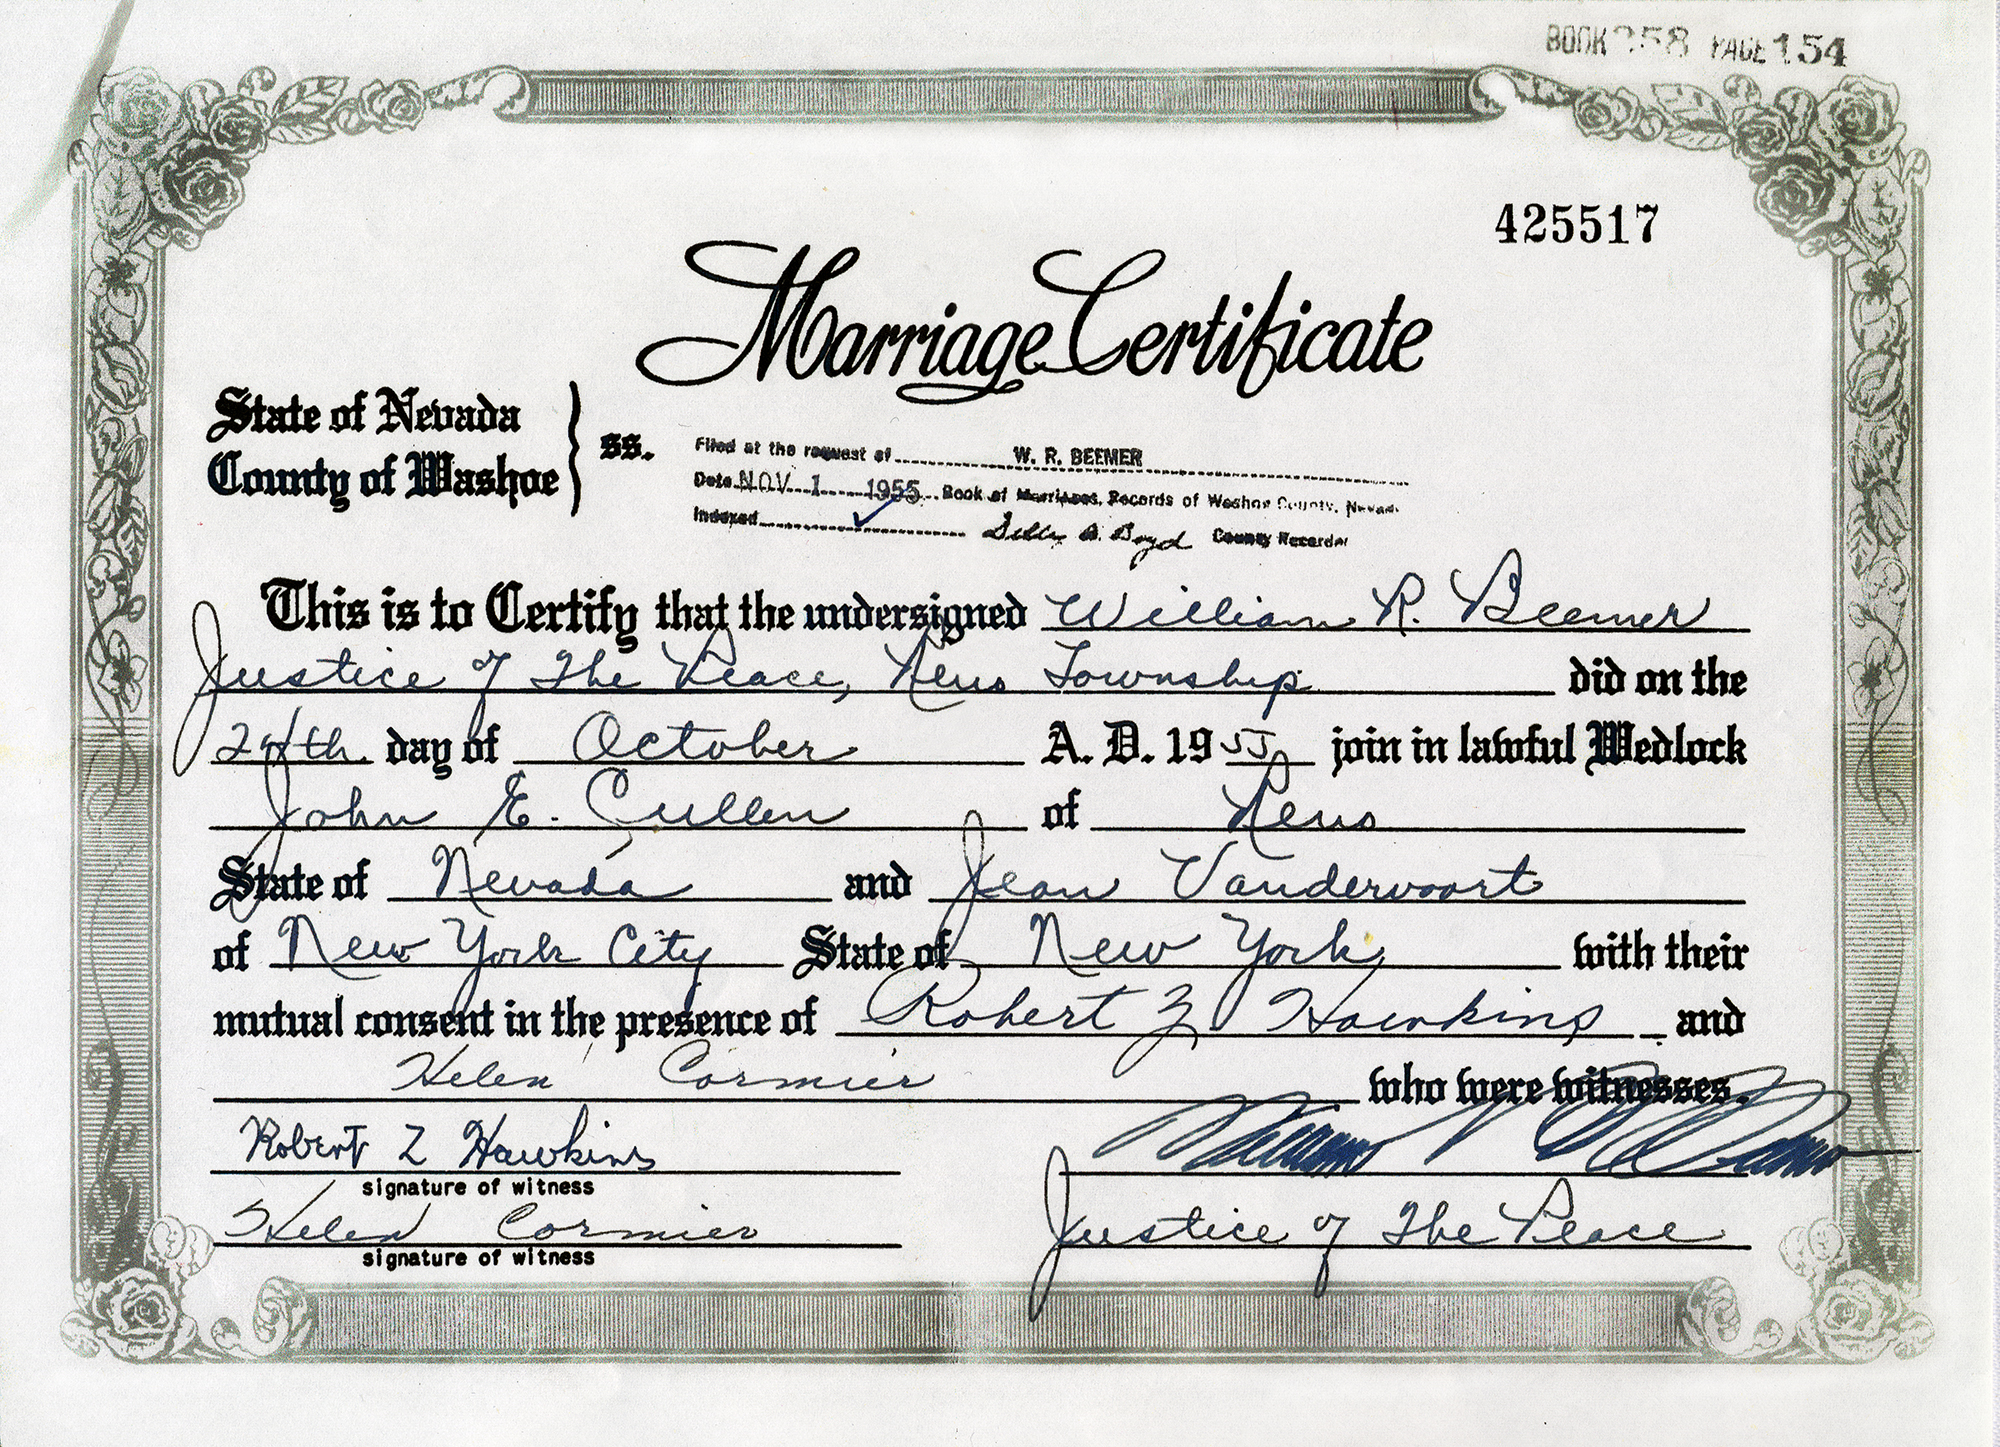 BOOK 258 PAGE 154
425517
Marriage Certificate
State of Nevada
County of Washoe
ss.
Filed at the request of W. R. BEEMER
Date NOV 1 1955 Book of Marriages, Records of Washoe County, Nevada
Indexed ✓ A. Boyd County Recorder
This is to Certify that the undersigned William R. Beemer
Justice of The Peace, Reno Township did on the
24th. day of October A. D. 1955 join in lawful Wedlock
John E. Cullen of Reno
State of Nevada and Jean Vandervoort
of New York City State of New York, with their
mutual consent in the presence of Robert Z Hawkins and
Helen Cormier who were witnesses.
Robert Z Hawkins
signature of witness
Helen Cormier
signature of witness
Justice of The Peace